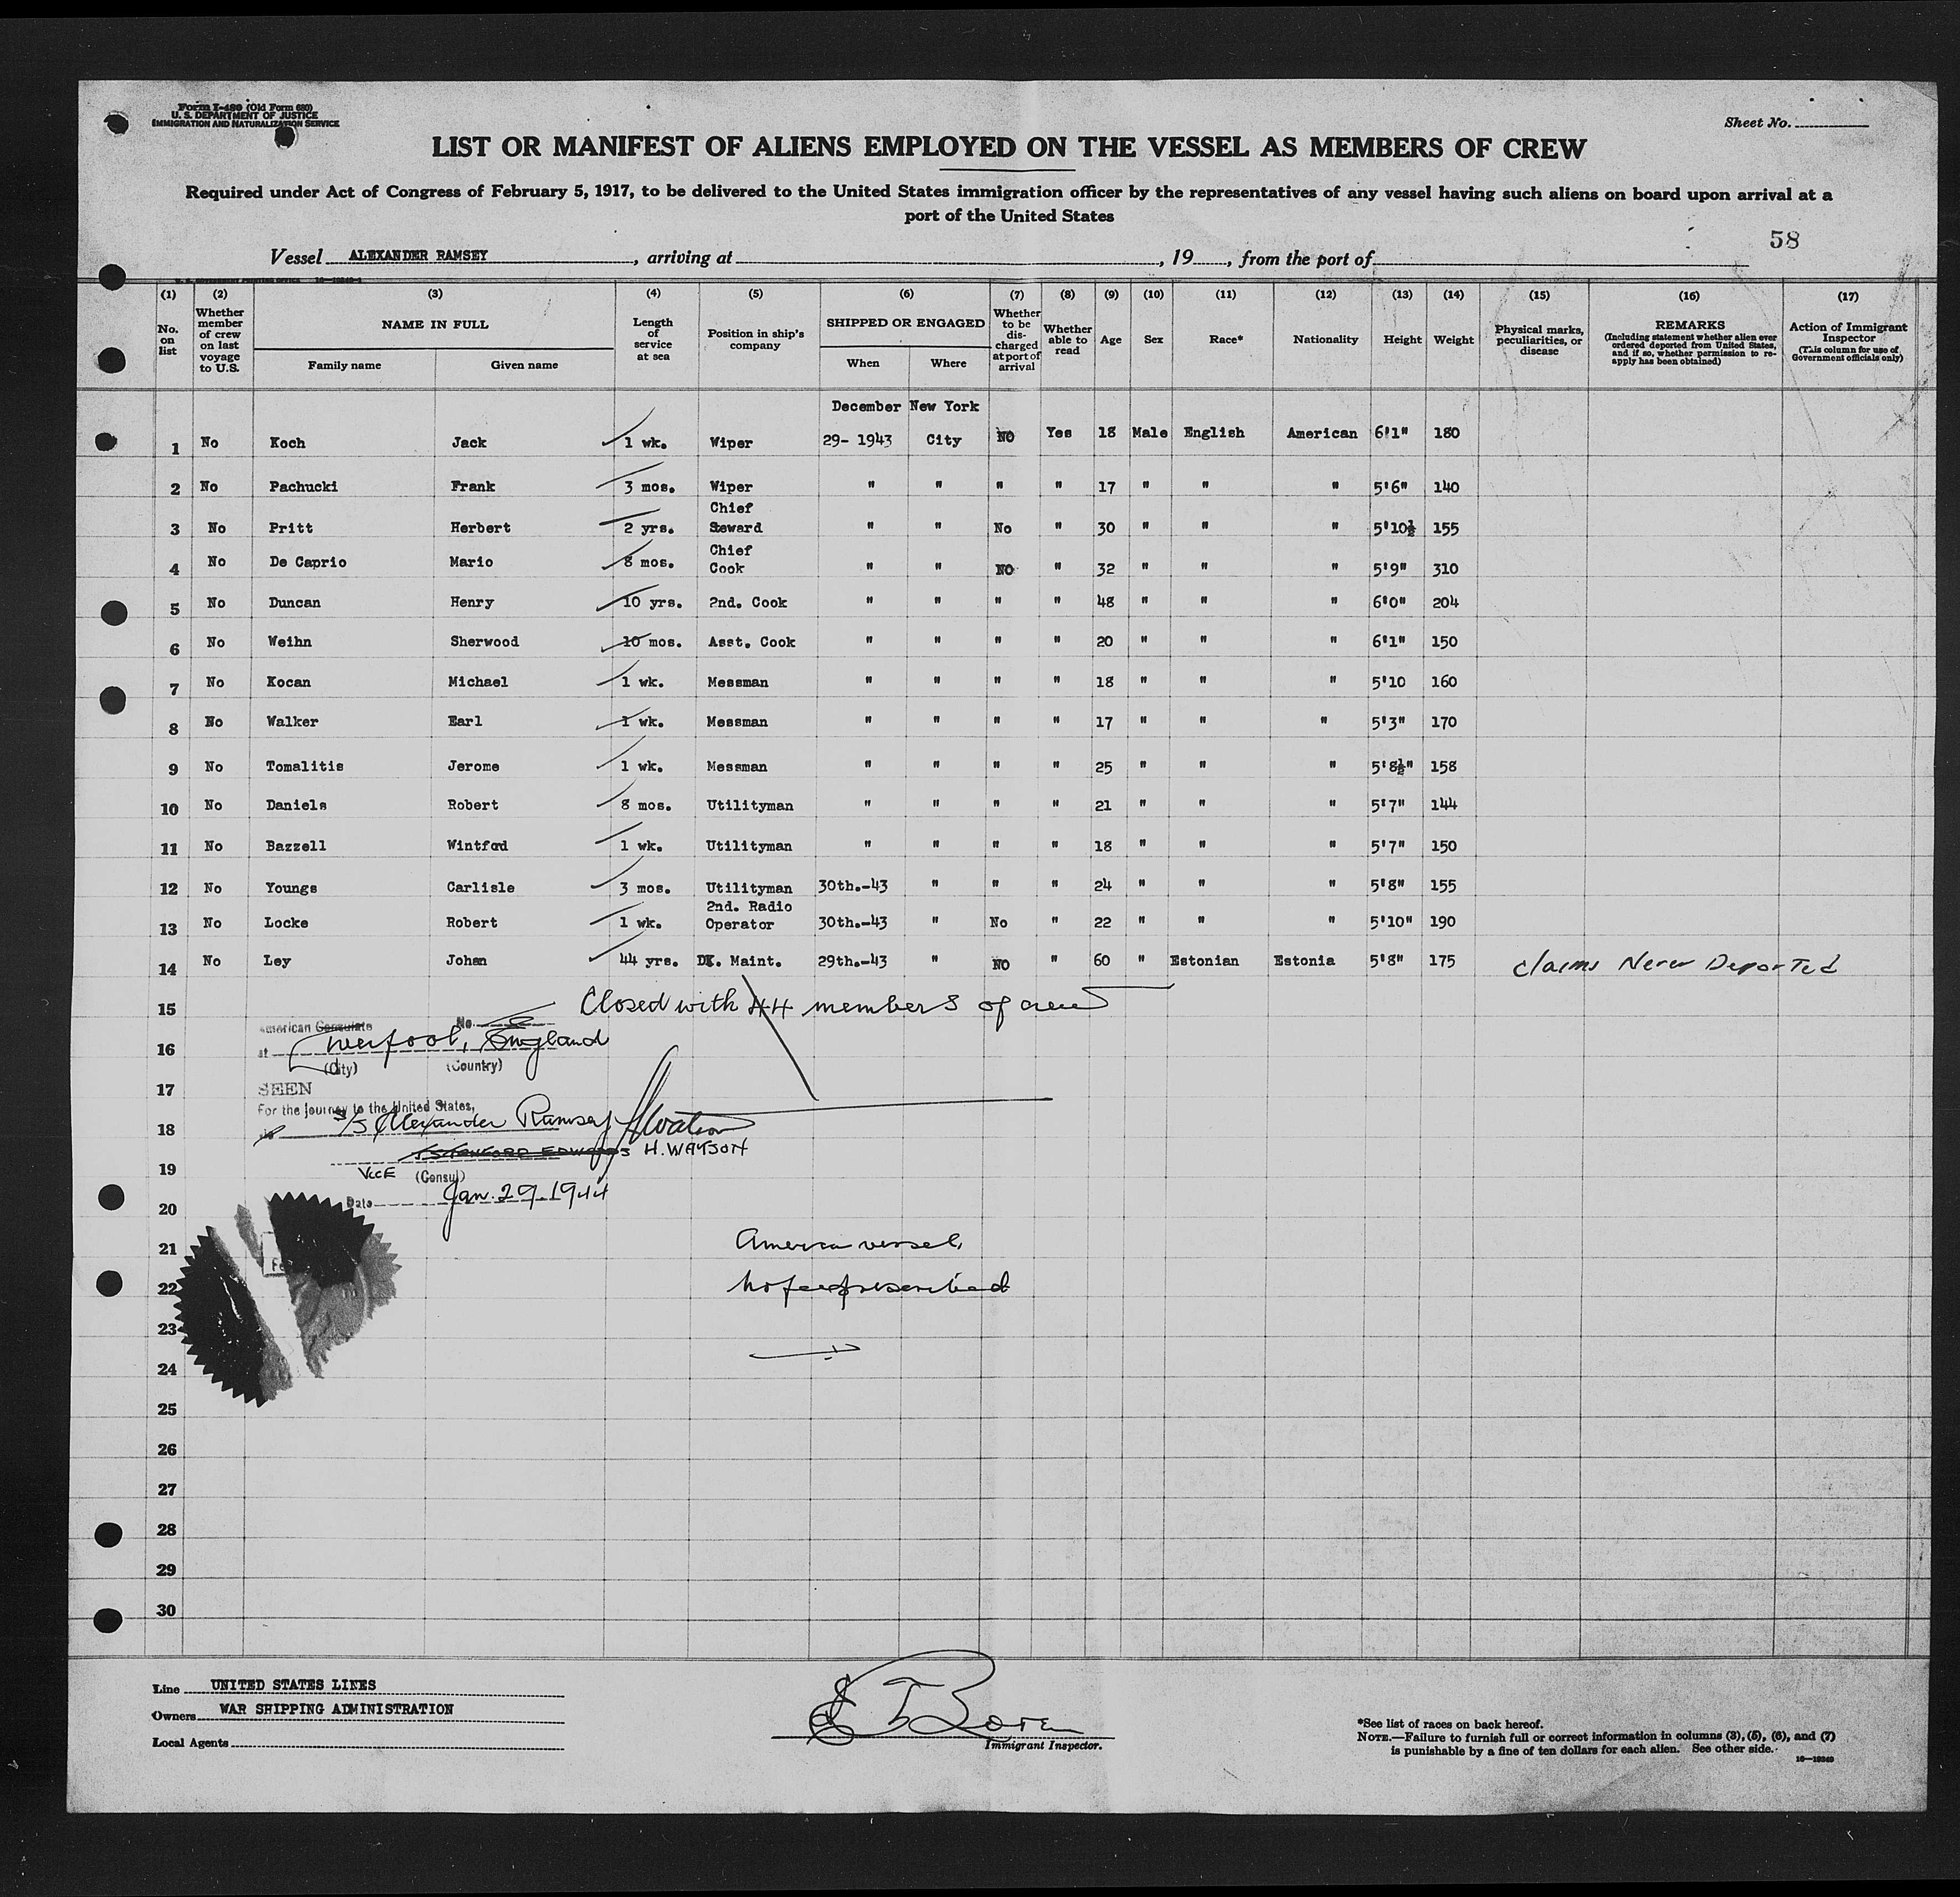 Form I-480 (Old Form 680)
U. S. DEPARTMENT OF JUSTICE
IMMIGRATION AND NATURALIZATION SERVICE
Sheet No.
LIST OR MANIFEST OF ALIENS EMPLOYED ON THE VESSEL AS MEMBERS OF CREW
Required under Act of Congress of February 5, 1917, to be delivered to the United States immigration officer by the representatives of any vessel having such aliens on board upon arrival at a
port of the United States
58
Vessel ALEXANDER RAMSEY, arriving at , 19 , from the port of
(1) (2) (3) (4) (5) (6) (7) (8) (9) (10) (11) (12) (13) (14) (15) (16) (17)
No. on list
Whether member of crew on last voyage to U.S.
NAME IN FULL
Family name Given name
Length of service at sea
Position in ship's company
SHIPPED OR ENGAGED
When Where
Whether to be discharged at port of arrival
Whether able to read
Age
Sex
Race*
Nationality
Height
Weight
Physical marks, peculiarities, or disease
REMARKS
(Including statement whether alien ever ordered deported from United States, and if so, whether permission to re-apply has been obtained)
Action of Immigrant Inspector
(This column for use of Government officials only)
December New York
1 No Koch Jack 1 wk. Wiper 29- 1943 City NO Yes 18 Male English American 6'1" 180
2 No Pachucki Frank 3 mos. Wiper " " " " 17 " " " 5'6" 140
Chief
3 No Pritt Herbert 2 yrs. Steward " " No " 30 " " " 5'10½ 155
Chief
4 No De Caprio Mario 8 mos. Cook " " NO " 32 " " " 5'9" 310
5 No Duncan Henry 10 yrs. 2nd. Cook " " " " 48 " " " 6'0" 204
6 No Weihn Sherwood 10 mos. Asst. Cook " " " " 20 " " " 6'1" 150
7 No Kocan Michael 1 wk. Messman " " " " 18 " " " 5'10 160
8 No Walker Earl 1 wk. Messman " " " " 17 " " " 5'3" 170
9 No Tomalitis Jerome 1 wk. Messman " " " " 25 " " " 5'8½" 158
10 No Daniels Robert 8 mos. Utilityman " " " " 21 " " " 5'7" 144
11 No Bazzell Wintfod 1 wk. Utilityman " " " " 18 " " " 5'7" 150
12 No Youngs Carlisle 3 mos. Utilityman 30th.-43 " " " 24 " " " 5'8" 155
2nd. Radio
13 No Locke Robert 1 wk. Operator 30th.-43 " No " 22 " " " 5'10" 190
14 No Ley Johan 44 yrs. DK. Maint. 29th.-43 " NO " 60 " Estonian Estonia 5'8" 175 Claims Never Deported
15 Closed with 44 members of crew
American Consulate No.
16 at Liverpool, England
(City) (Country)
17 SEEN
For the journey to the United States,
18 S/S Alexander Ramsey HWatson
J STANFORD EDWARDS H. WATSON
19 VICE (Consul)
Date Jan. 29. 1944
20
21 America vessel,
22 no fee prescribed
23
24
25
26
27
28
29
30
Line UNITED STATES LINES
Owners WAR SHIPPING ADMINISTRATION
Local Agents
Immigrant Inspector.
*See list of races on back hereof.
NOTE.—Failure to furnish full or correct information in columns (3), (5), (6), and (7)
is punishable by a fine of ten dollars for each alien. See other side.